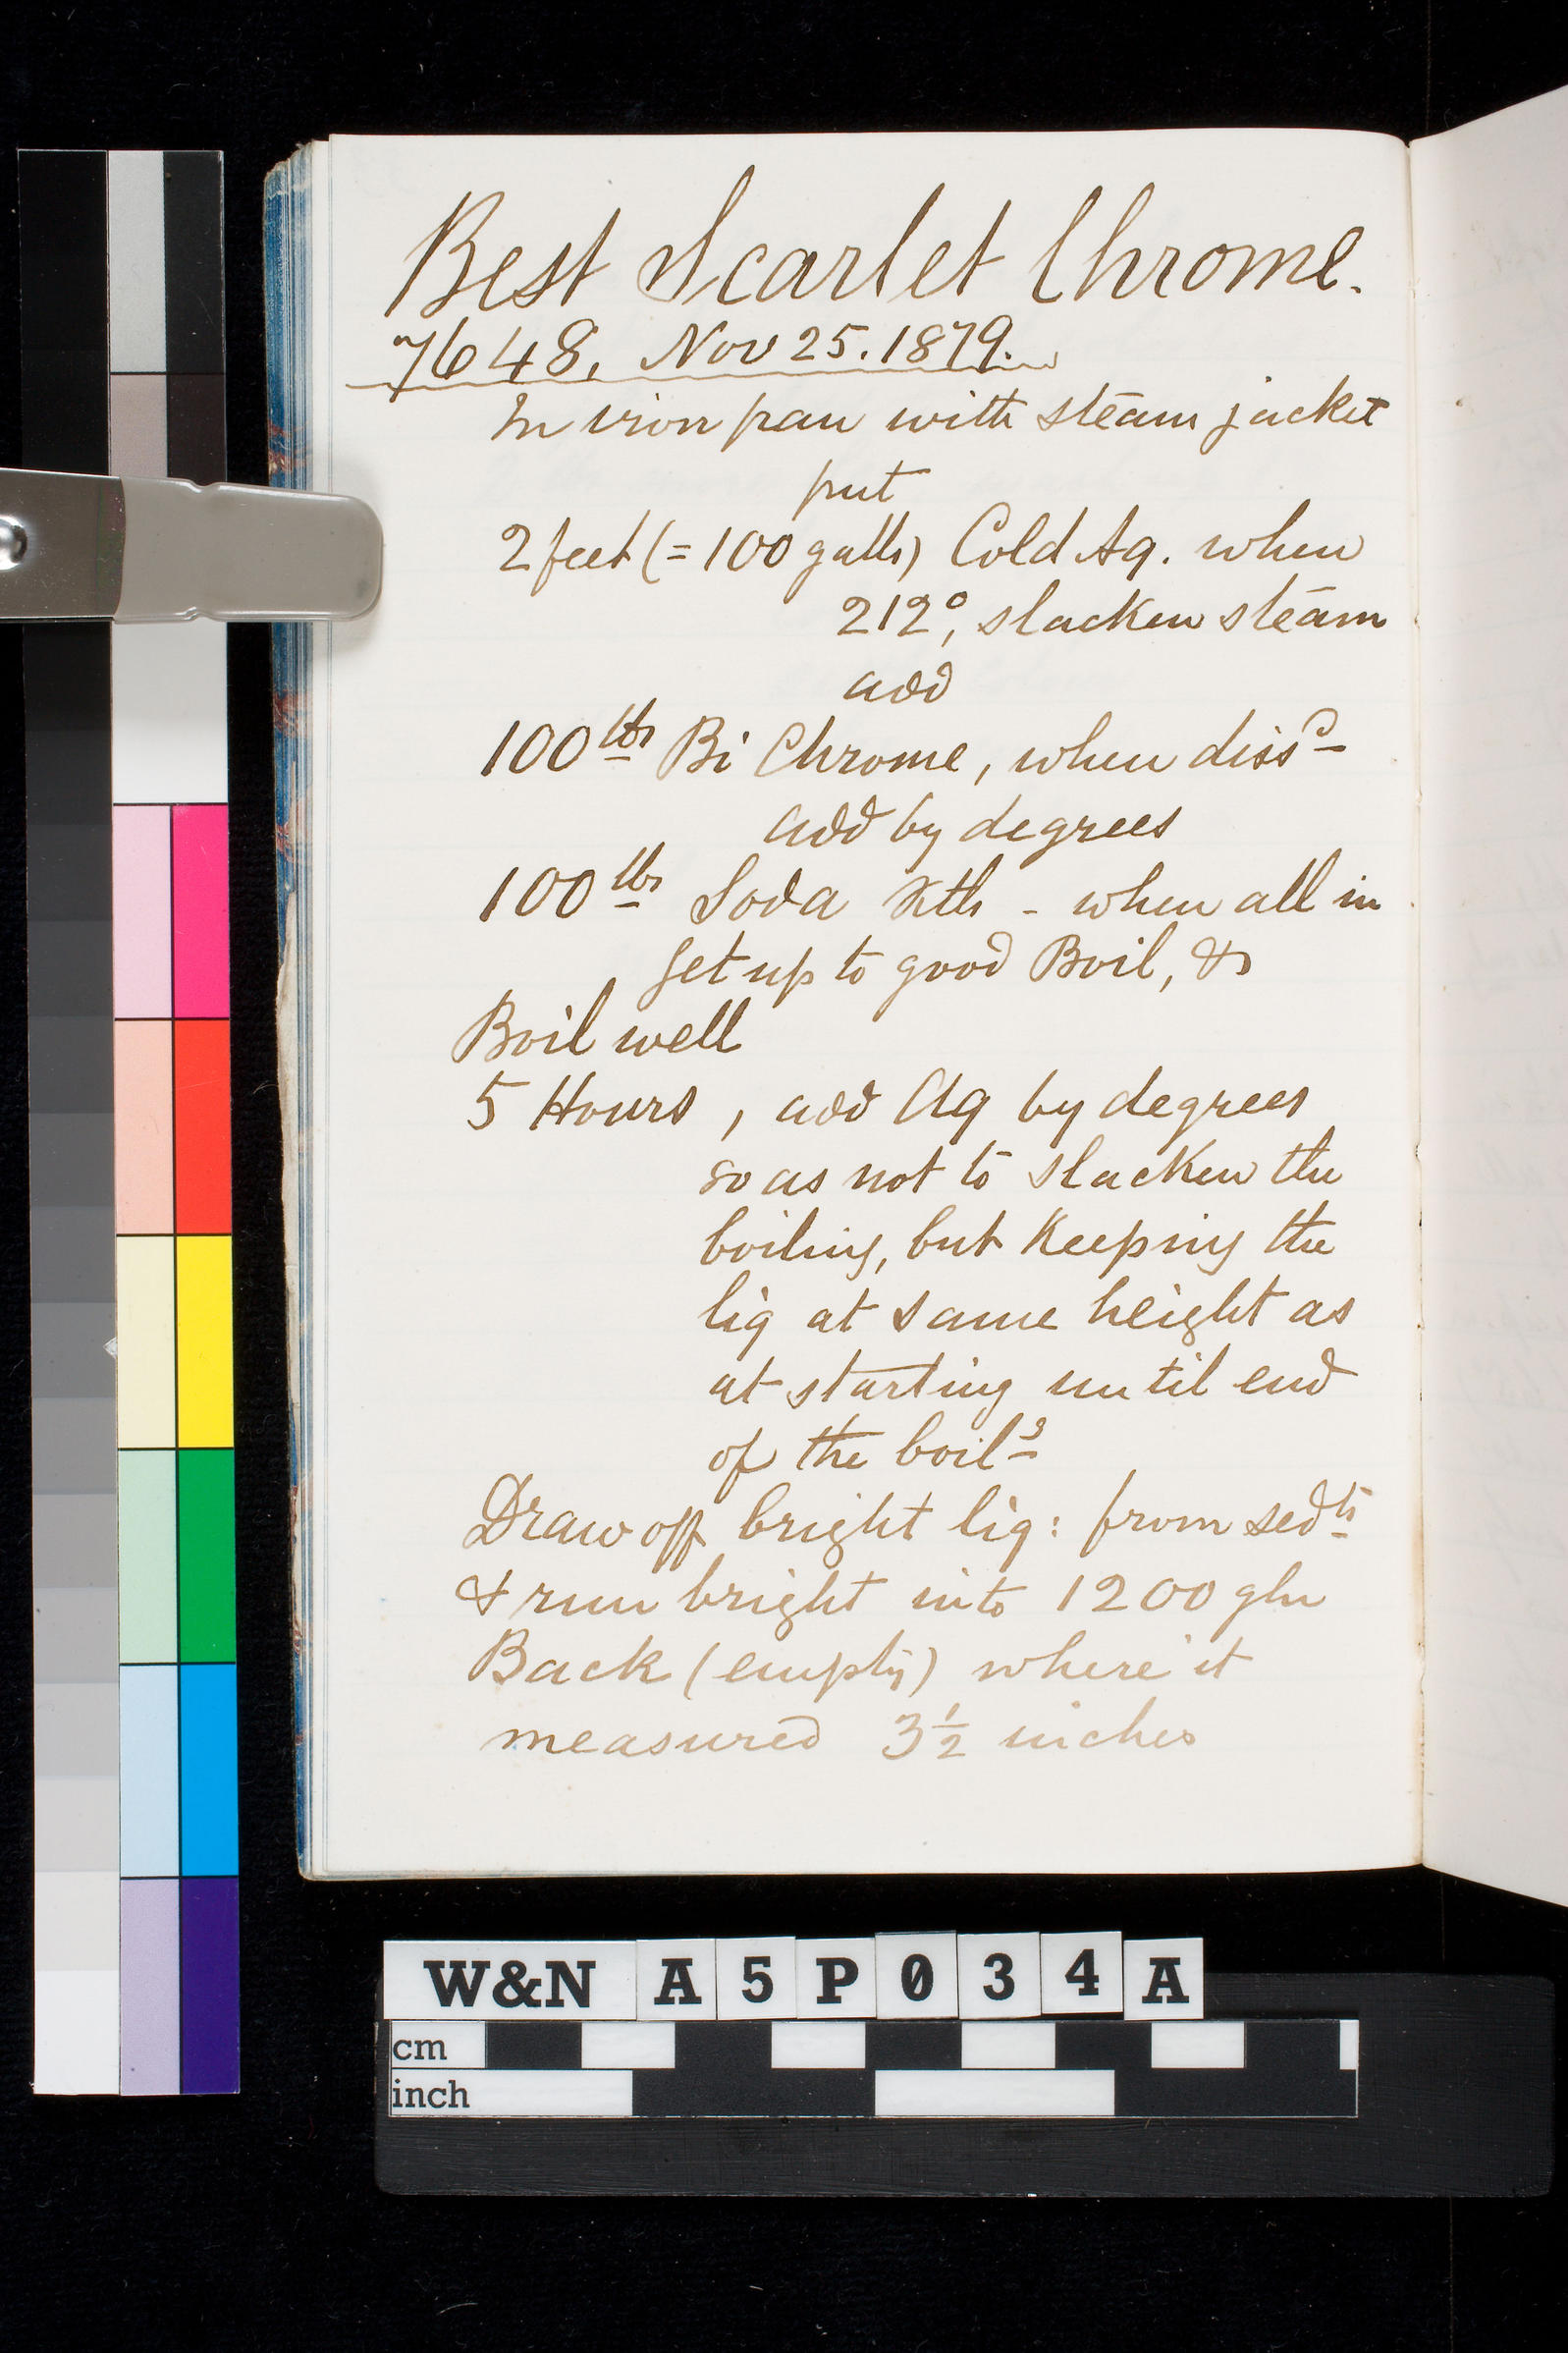 Best Scarlet Chrome.
7648, Nov 25. 1879.
In iron pan with steam jacket
put
2 feet (= 100 galls) Cold Aq. when
212°, slacken steam
add
100 lbs Bi Chrome, when dissd
add by degrees
100 lbs Soda Xtls - when all in
get up to good Boil, &
Boil well
5 Hours, add Aq by degrees
so as not to slacken the
boiling, but Keeping the
liq at same height as
at starting until end
of the boilg
Draw off bright liq: from sedts
& run bright into 1200 gln
Back (empty) where it
measured 3 1/2 inches
W&N A5P034A
cm
inch